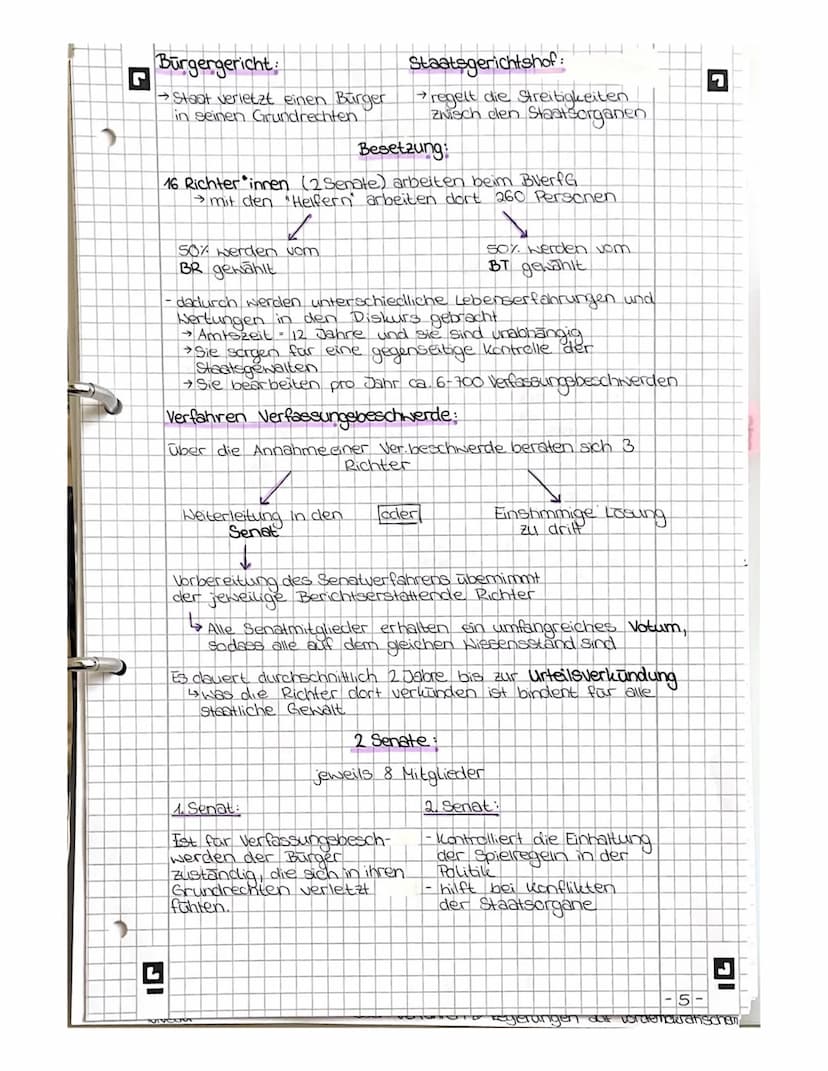 Bürgergericht:
→ Staat verletzt einen Bürger
in seinen Grundrechten
Staatsgerichtshof:
→ regelt die Streitigkeiten
zwisch den Staatsorganen
Besetzung:
16 Richter*innen (2 Senate) arbeiten beim BVerfG
→ mit den "Helfern" arbeiten dort 260 Personen
50% werden vom
BR gewählt
50% werden vom
BT gewählt
- dadurch werden unterschiedliche Lebenserfahrungen und
Wertungen in den Diskurs gebracht
→ Amtszeit = 12 Jahre und sie sind unabhängig
→ Sie sorgen für eine gegenseitige Kontrolle der
Staatsgewalten
→ Sie bearbeiten pro Jahr ca. 6-700 Verfassungsbeschwerden
Verfahren Verfassungsbeschwerde:
über die Annahme einer Ver.beschwerde beraten sich 3
Richter
Weiterleitung in den
Senat
oder
Einstimmige Lösung
zu dritt
Vorbereitung des Senatverfahrens übernimmt
der jeweilige Berichtserstattende Richter
↳ Alle Senatmitglieder erhalten ein umfangreiches Votum,
sodass alle auf dem gleichen Wissensstand sind
Es dauert durchschnittlich 2 Jahre bis zur Urteilsverkündung
↳ was die Richter dort verkünden ist bindent für alle
staatliche Gewalt
2 Senate:
jeweils 8 Mitglieder
1. Senat:
Ist für Verfassungsbesch-
werden der Bürger
zuständig, die sich in ihren
Grundrechten verletzt
fühlen.
2. Senat:
- Kontrolliert die Einhaltung
der Spielregeln in der
Politik
- hilft bei Konflikten
der Staatsorgane
- 5 -